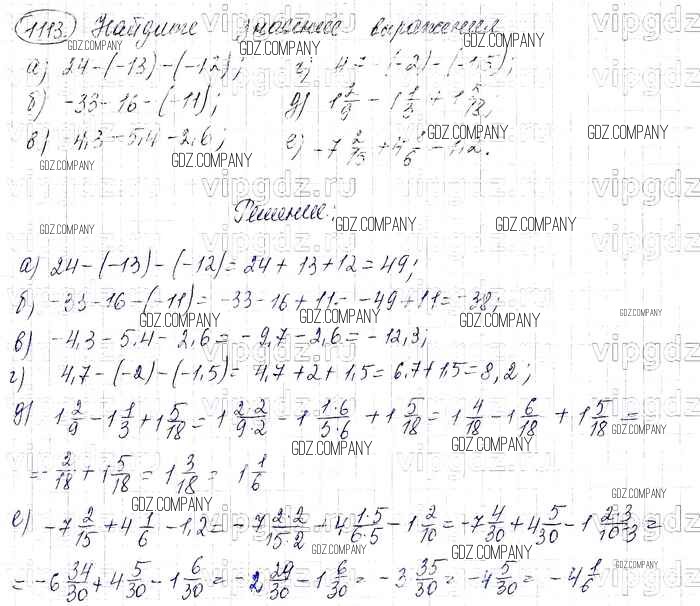 1113. Найдите значение выражения
а) 24-(-13)-(-12); г) 4 -(-2)-(-1,5);
б) -33-16-(-11); д) 1 2/9 - 1 1/3 + 1 5/18;
в) -4,3-5,4-2,6; е) -7 2/15 + 4 1/6 - 1,2.
Решение:
а) 24-(-13)-(-12)=24+13+12=49;
б) -33-16-(-11)= -33-16+11= -49+11= -38;
в) -4,3-5,4-2,6= -9,7-2,6= -12,3;
г) 4,7-(-2)-(-1,5)= 4,7+2+1,5=6,7+1,5=8,2;
д) 1 2/9 - 1 1/3 + 1 5/18 = 1 2·2/9·2 - 1 1·6/3·6 + 1 5/18 = 1 4/18 - 1 6/18 + 1 5/18 =
= - 2/18 + 1 5/18 = 1 3/18 = 1 1/6
е) -7 2/15 + 4 1/6 - 1,2 = -7 2·2/15·2 + 4 1·5/6·5 - 1 2/10 = -7 4/30 + 4 5/30 - 1 2·3/10·3 =
= -6 34/30 + 4 5/30 - 1 6/30 = -2 29/30 - 1 6/30 = -3 35/30 = -4 5/30 = -4 1/6
GDZ.COMPANY
vipgdz.ru